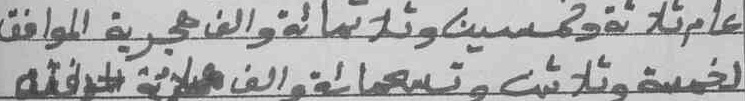 عام ثلاثة وخمسين وثلاثمائة والف هجرية الموافق
لخمسة وثلاثين وتسعمائة والف